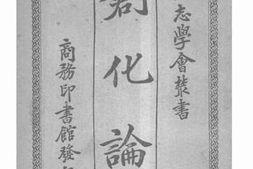 志學會叢書
化論
商務印書館發